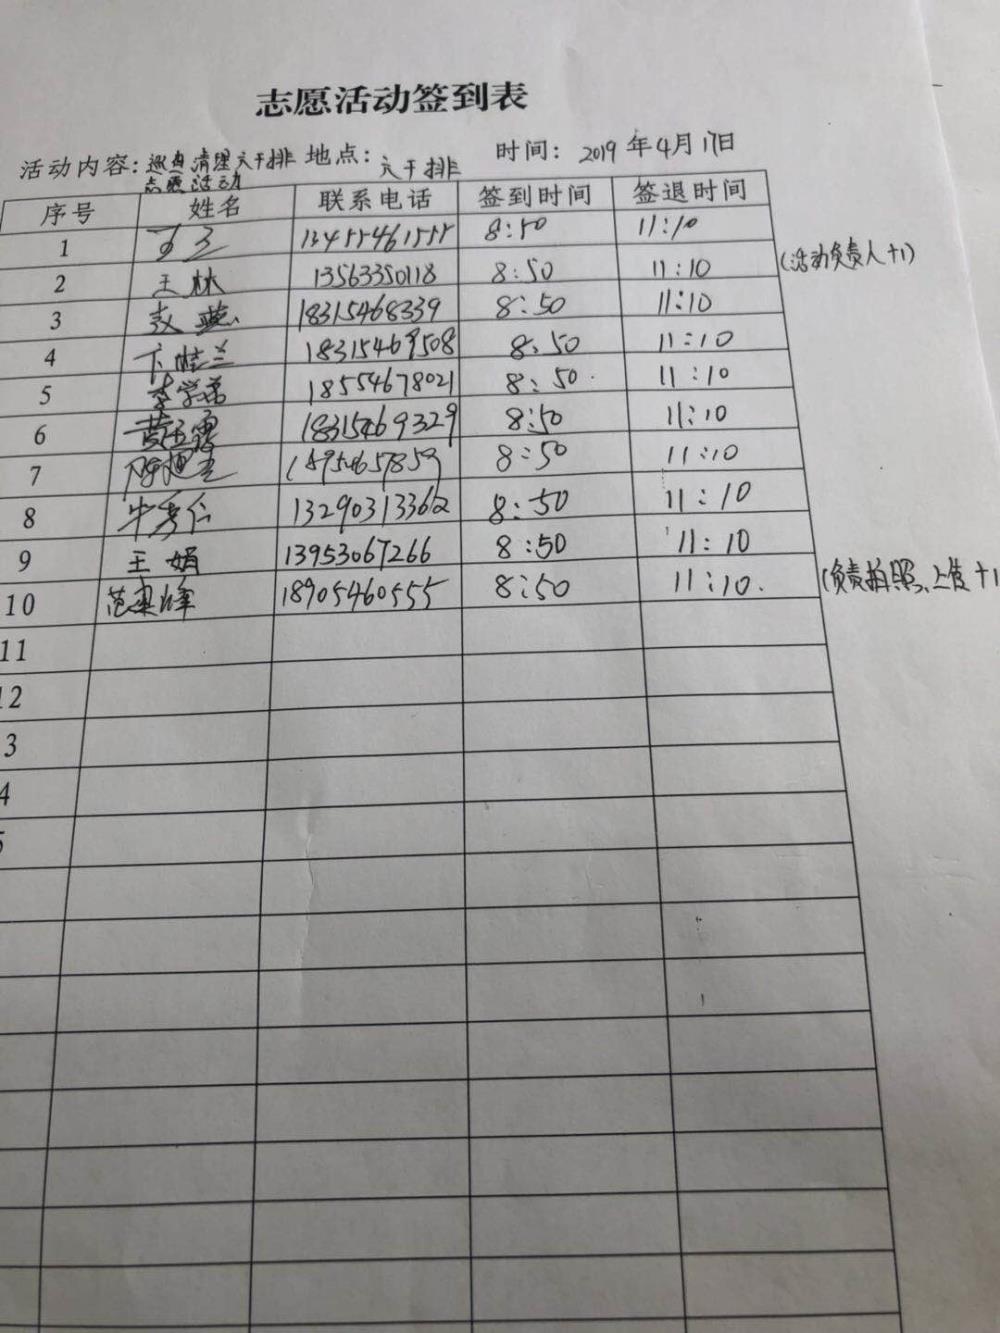 志愿活动签到表
活动内容: 巡查清理六干排 地点: 六干排 时间: 2019年4月17日
志愿活动
序号 姓名 联系电话 签到时间 签退时间
1 13455461555 8:50 11:10
(活动负责人+1)
2 王林 13563350118 8:50 11:10
3 18315468339 8:50 11:10
4 卞桂兰 18315469508 8:50 11:10
5 李学弟 18554678021 8:50 11:10
6 黄玉霞 18315469329 8:50 11:10
7 18954657859 8:50 11:10
8 牛秀仁 13290313362 8:50 11:10
9 王娟 13953067266 8:50 11:10
10 范 峰 18905460555 8:50 11:10.
(负责拍照、上传+1
11
12
3
4
5